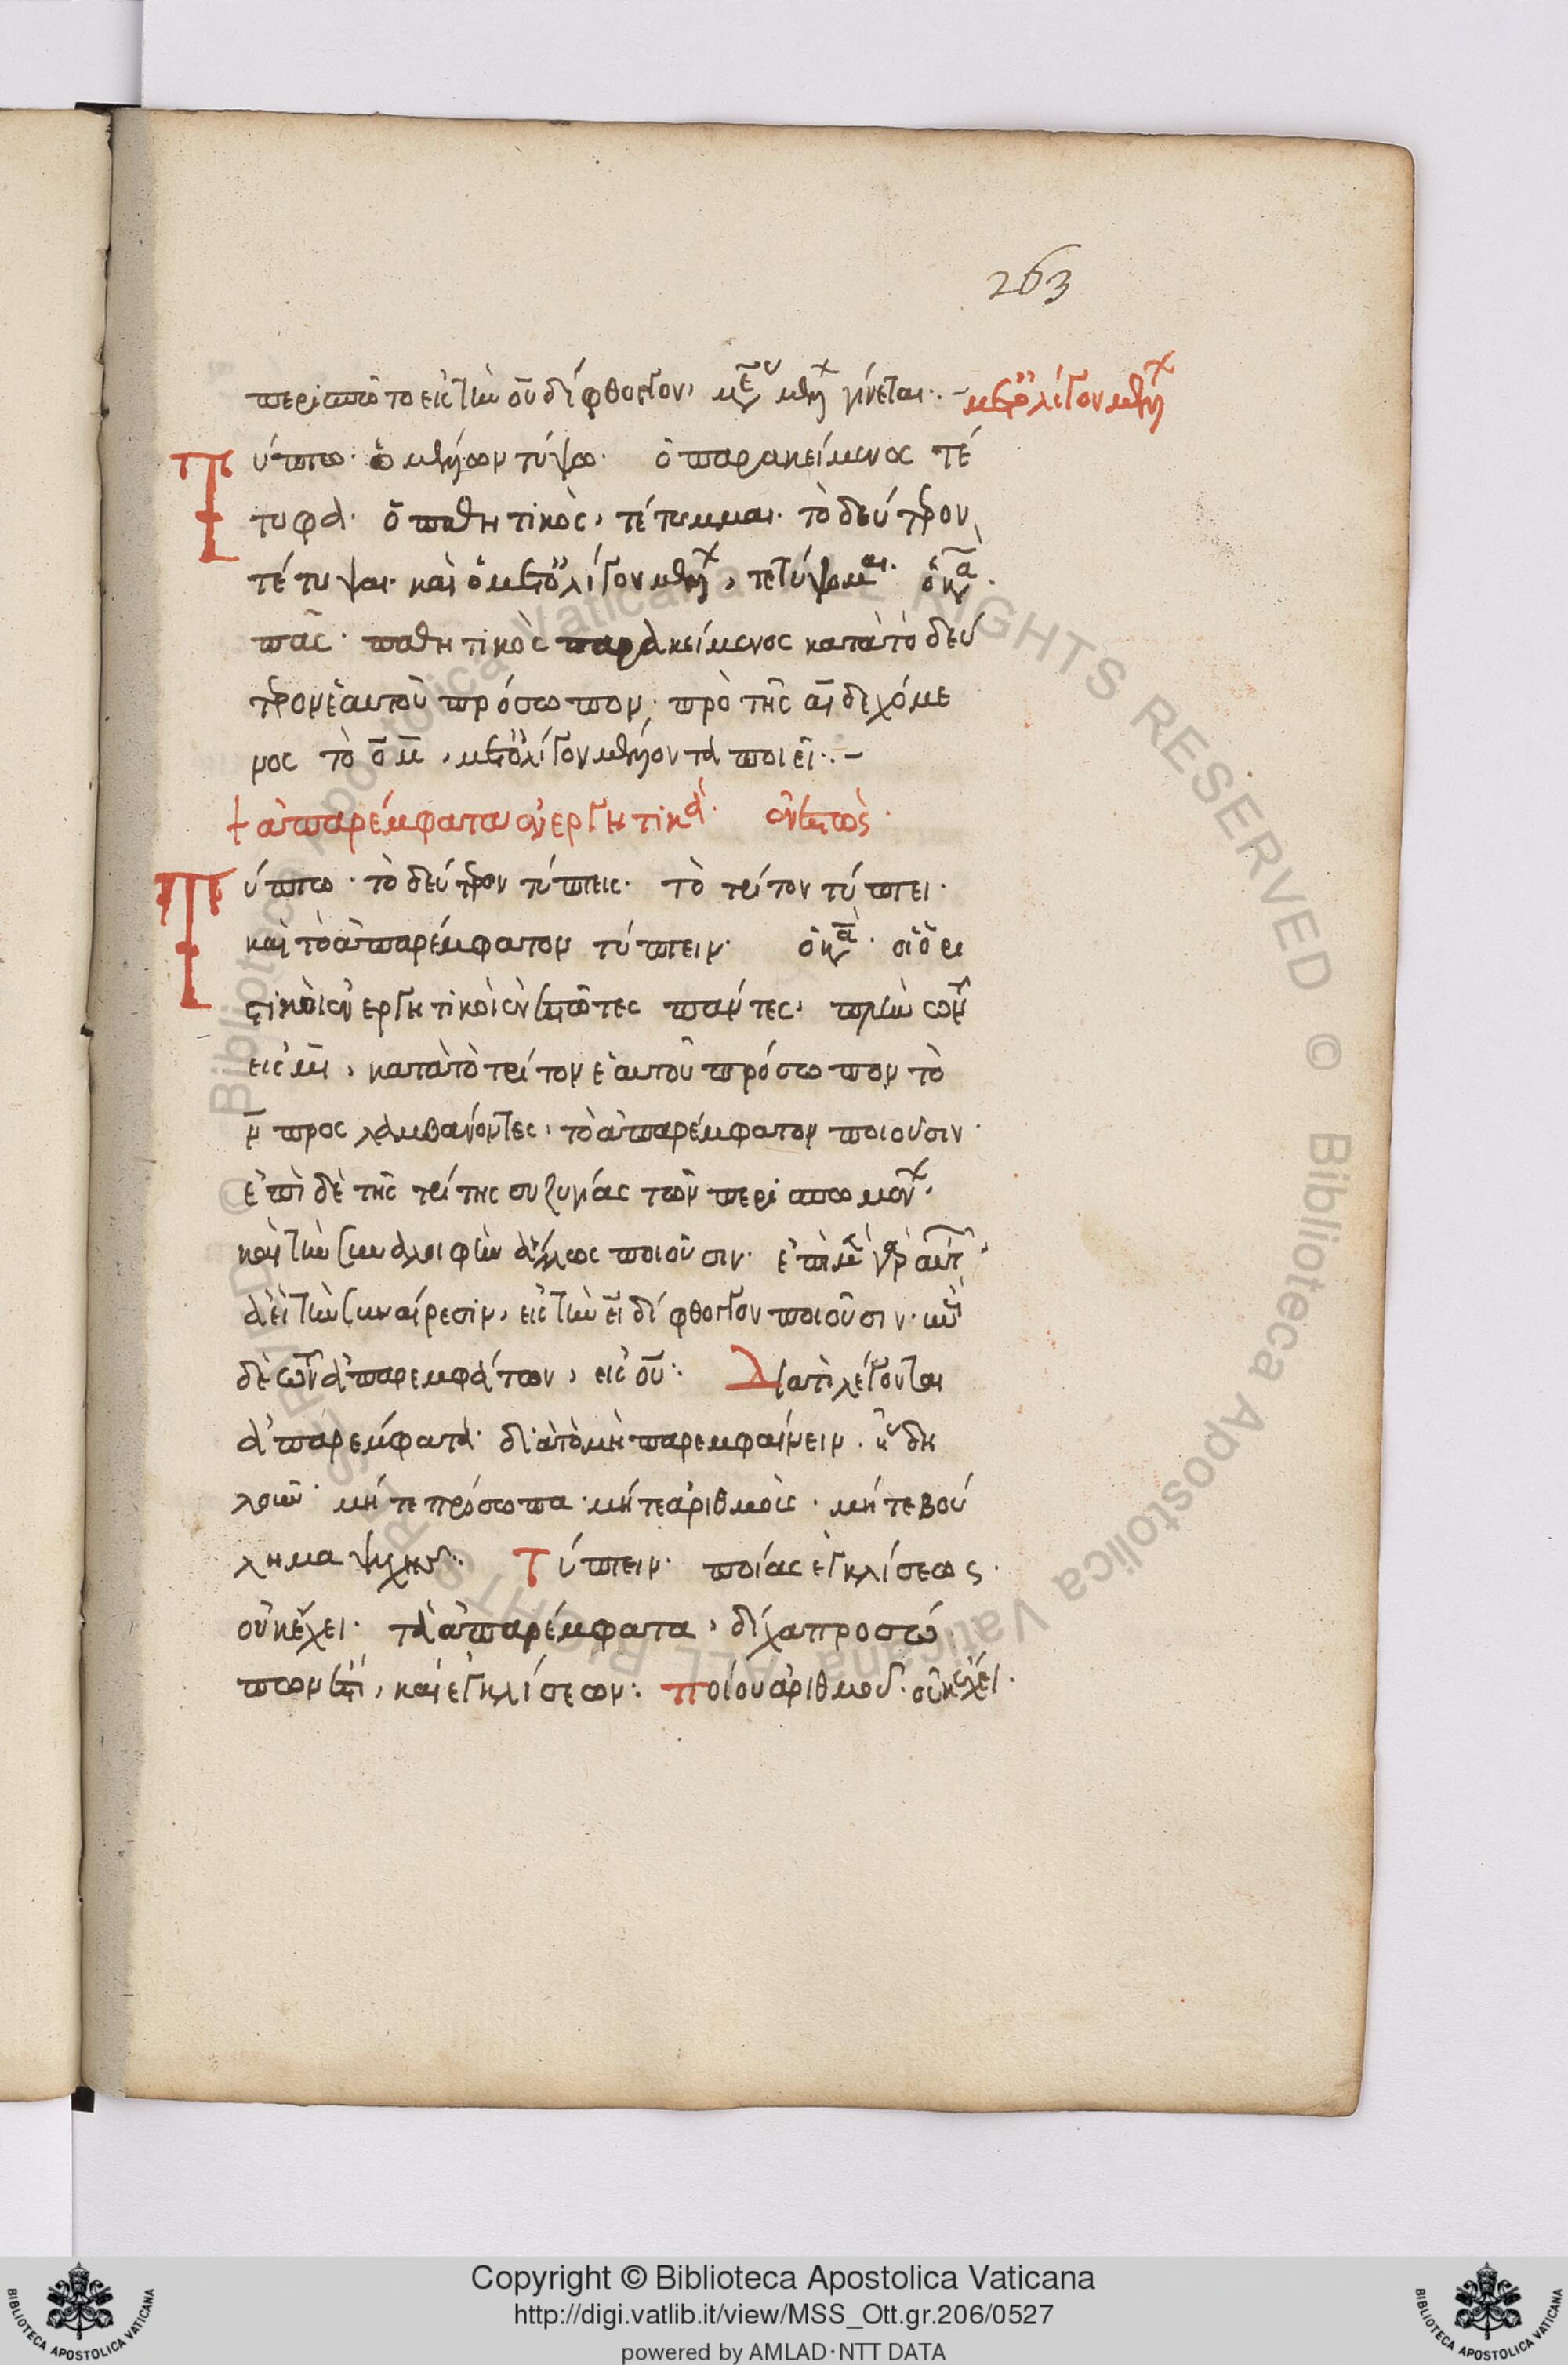 263
περισπῶτο εἰς τὴν οῦ δίφθογγον, μέσου μέλλ γίνεται. μετ' ὀλίγον μέλλ
Τύπτω. ὁ μέλλων τύψω. ὁ παρακείμενος τέ
τυφα. ὁ παθητικὸς, τέτυμμαι. τὸ δεύτερον
τέτυψαι. καὶ ὁ μετ' ὀλίγον μέλλ, τετύψομαι. ὁ κα
πᾶς παθητικὸς παρακείμενος κατὰ τὸ δεύ
τερον ἑαυτοῦ πρόσωπον, πρὸ τῆς αι δεχόμε
νος τὸ ο μ, μετ' ὀλίγον μέλλοντα ποιεῖ.
ἀπαρέμφατα ἐνεργητικά. ἐνεστώς.
Τύπτω. τὸ δεύτερον τύπτεις. τὸ τρίτον τύπτει.
καὶ τὸ ἀπαρέμφατον τύπτειν. ὁ κα. οἱ ὁρι
στικοὶ ἐνεργητικοὶ ἐνεστῶτες πάντες, πλὴν τῶν
εἰς μι, κατὰ τὸ τρίτον ἑαυτοῦ πρόσωπον τὸ
ν προσλαμβάνοντες, τὸ ἀπαρέμφατον ποιοῦσιν.
ἐπὶ δὲ τῆς τρίτης συζυγίας τῶν περισπωμένων,
καὶ τὴν συναλοιφὴν ἄλλως ποιοῦσιν. ἐπὶ μὲν γὰρ αὐτ
ἀεὶ τὴν συναίρεσιν, εἰς τὴν οι δίφθογγον ποιοῦσιν. ἐπὶ
δὲ τῶν ἀπαρεμφάτων, εἰς ου: Διατί λέγονται
ἀπαρέμφατα. διὰ τὸ μὴ παρεμφαίνειν. ἤγουν δη
λοῦν. μήτε πρόσωπα. μήτε ἀριθμοὺς. μήτε βού
λημα ψυχῆς. Τύπτειν. ποίας ἐγκλίσεως.
οὐκ ἔχει. τὰ ἀπαρέμφατα, δίχα προσώ
πων ἐστί, καὶ ἐγκλίσεων: ποίου ἀριθμοῦ. οὐκ ἔχει.
Copyright © Biblioteca Apostolica Vaticana
http://digi.vatlib.it/view/MSS_Ott.gr.206/0527
powered by AMLAD·NTT DATA